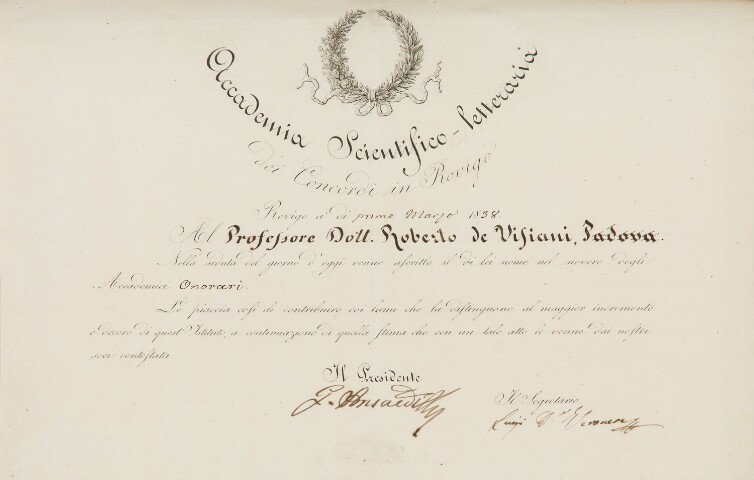 Accademia Scientifico-letteraria
dei Concordi in Rovigo
Rovigo a' dì primo Marzo 1838.
Al Professore Dott. Roberto de Visiani, Padova.
Nella seduta del giorno d'oggi venne ascritto il di lei nome nel novero degli
Accademici Onorari.
Le piaccia così di contribuire coi lumi che la distinguono al maggior incremento
e decoro di quest'Istituto, a continuazione di quella stima che con un tale atto le venne dai nostri
soci contestata
Il Presidente
Il Segretario
Luigi D.r